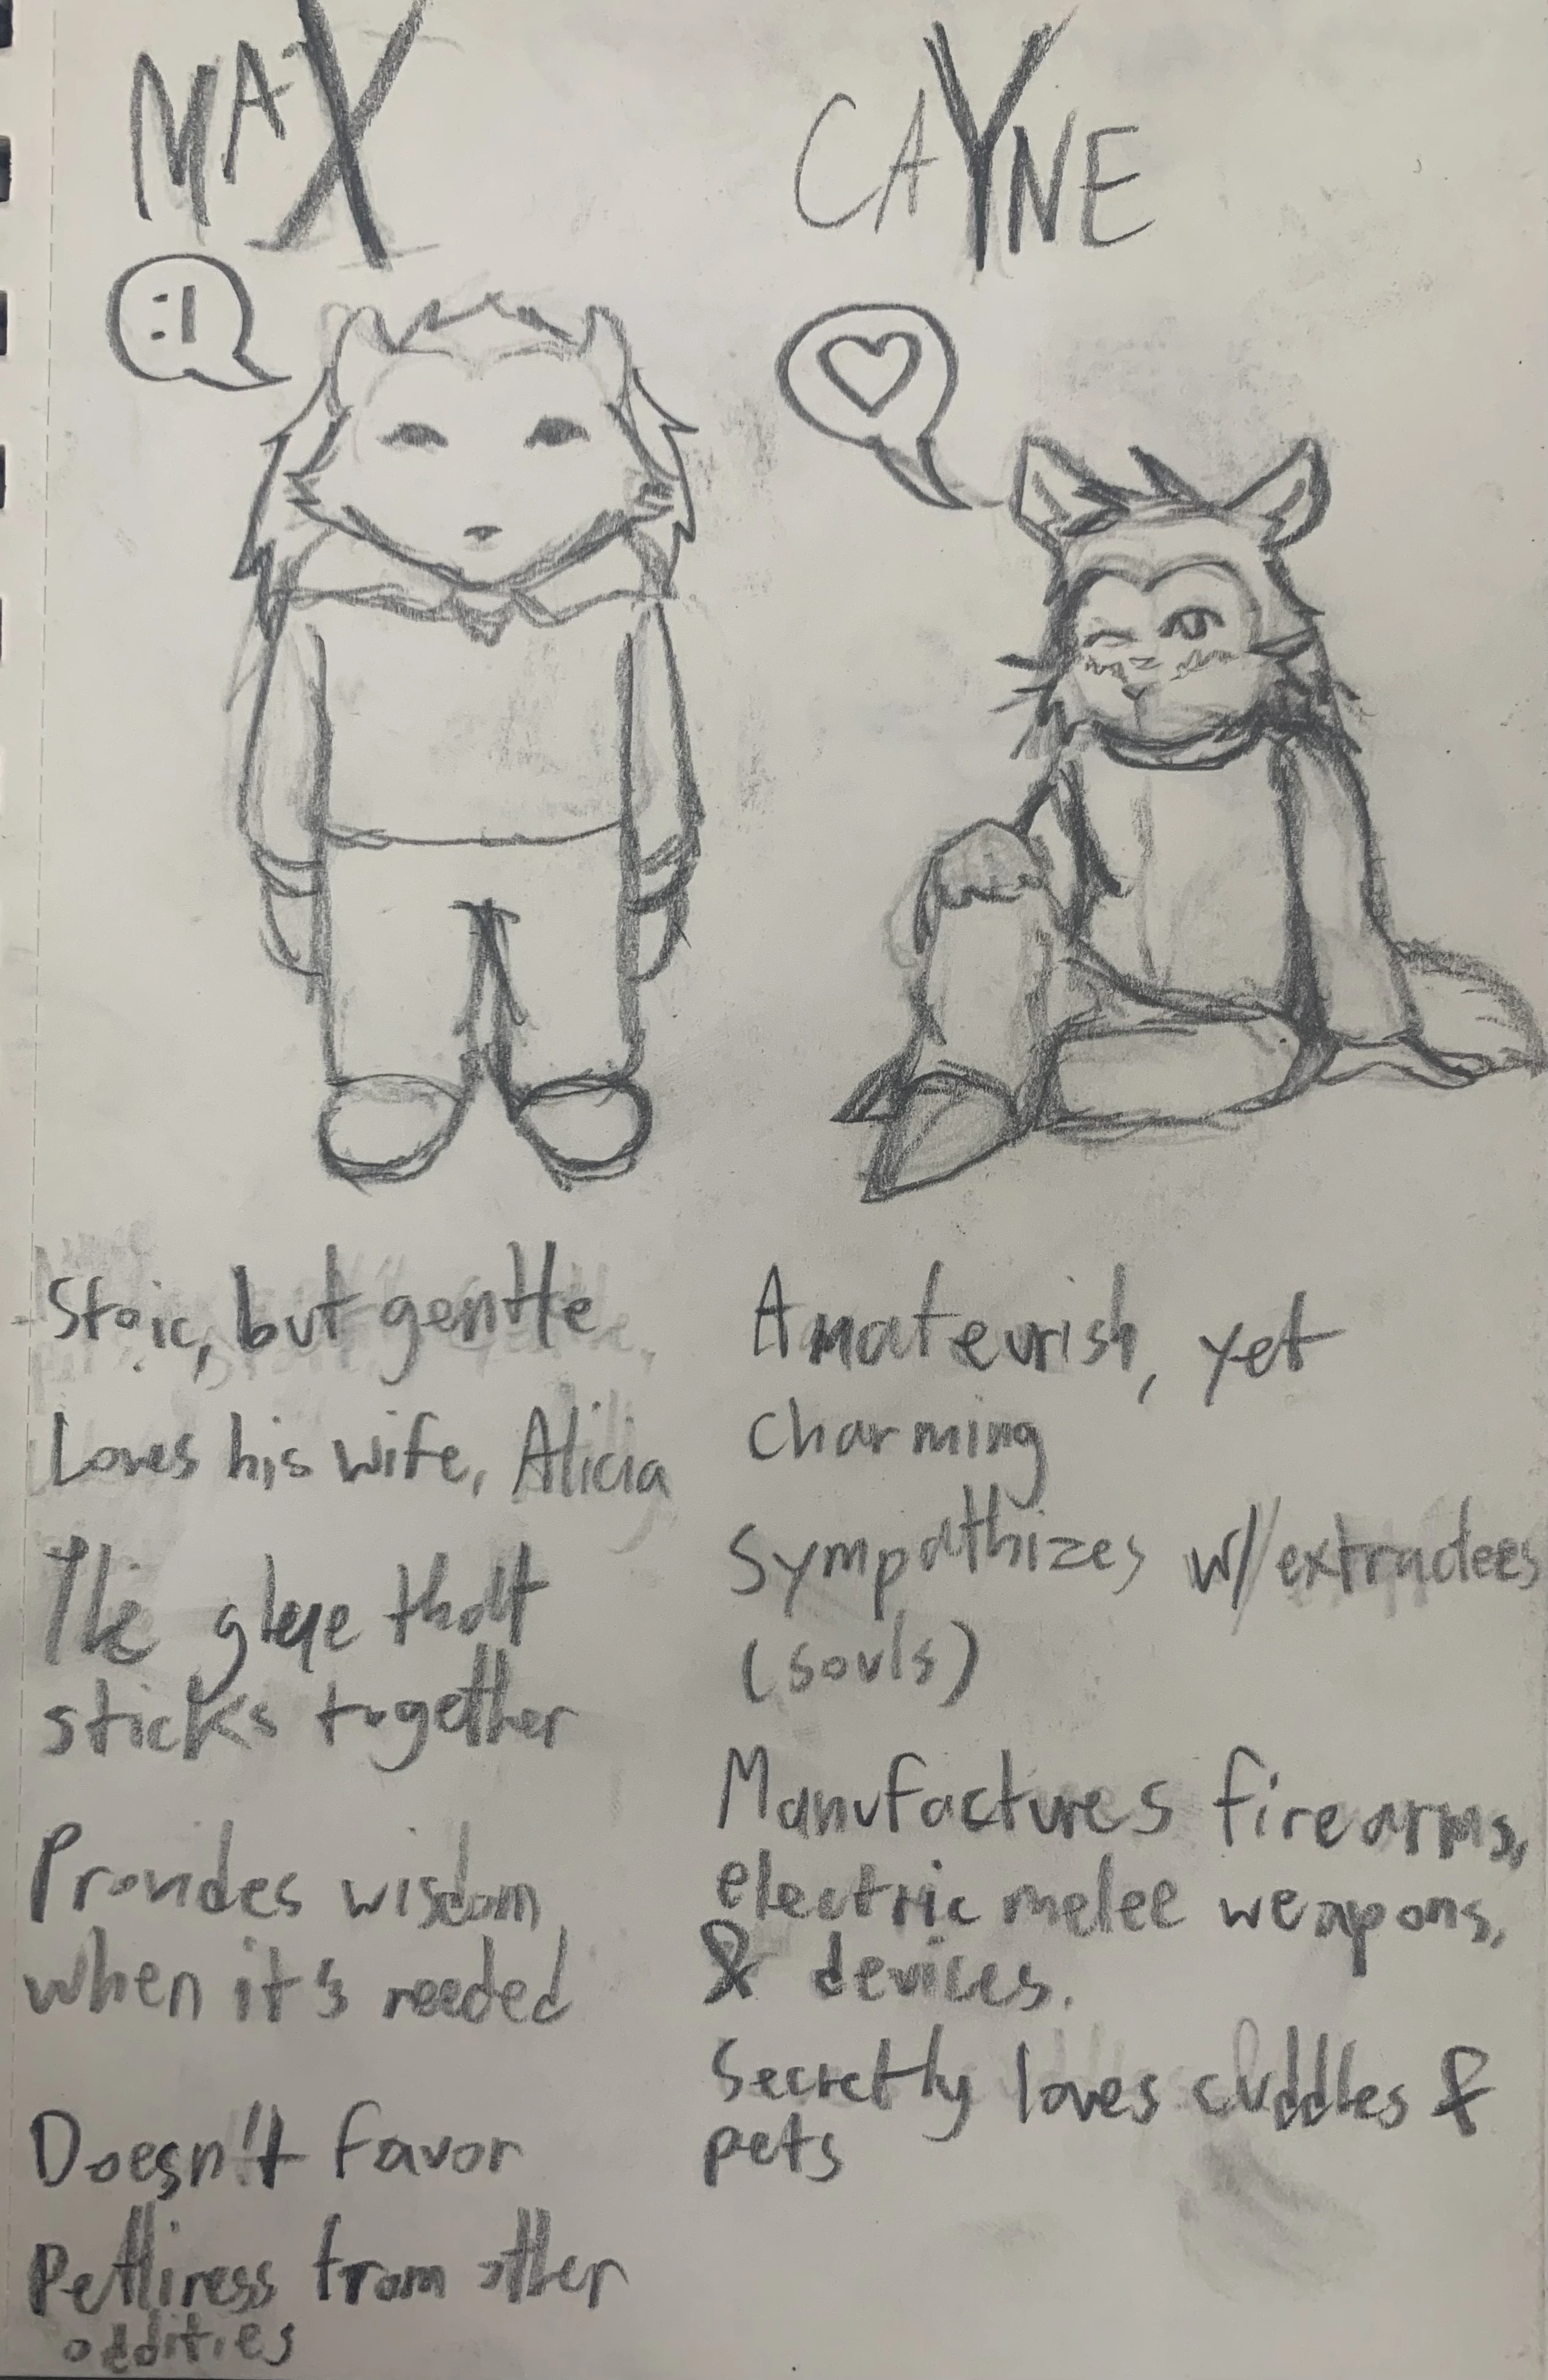 MAX
:|
Stoic, but gentle
Loves his wife, Alicia
The glue that
sticks together
Provides wisdom
when it's needed
Doesn't favor
Pettiness from other
oddities
CAYNE
Amateurish, yet
charming
Sympathizes w/ extradees
(souls)
Manufactures firearms,
electric melee weapons,
& devices.
Secretly loves cuddles &
pets